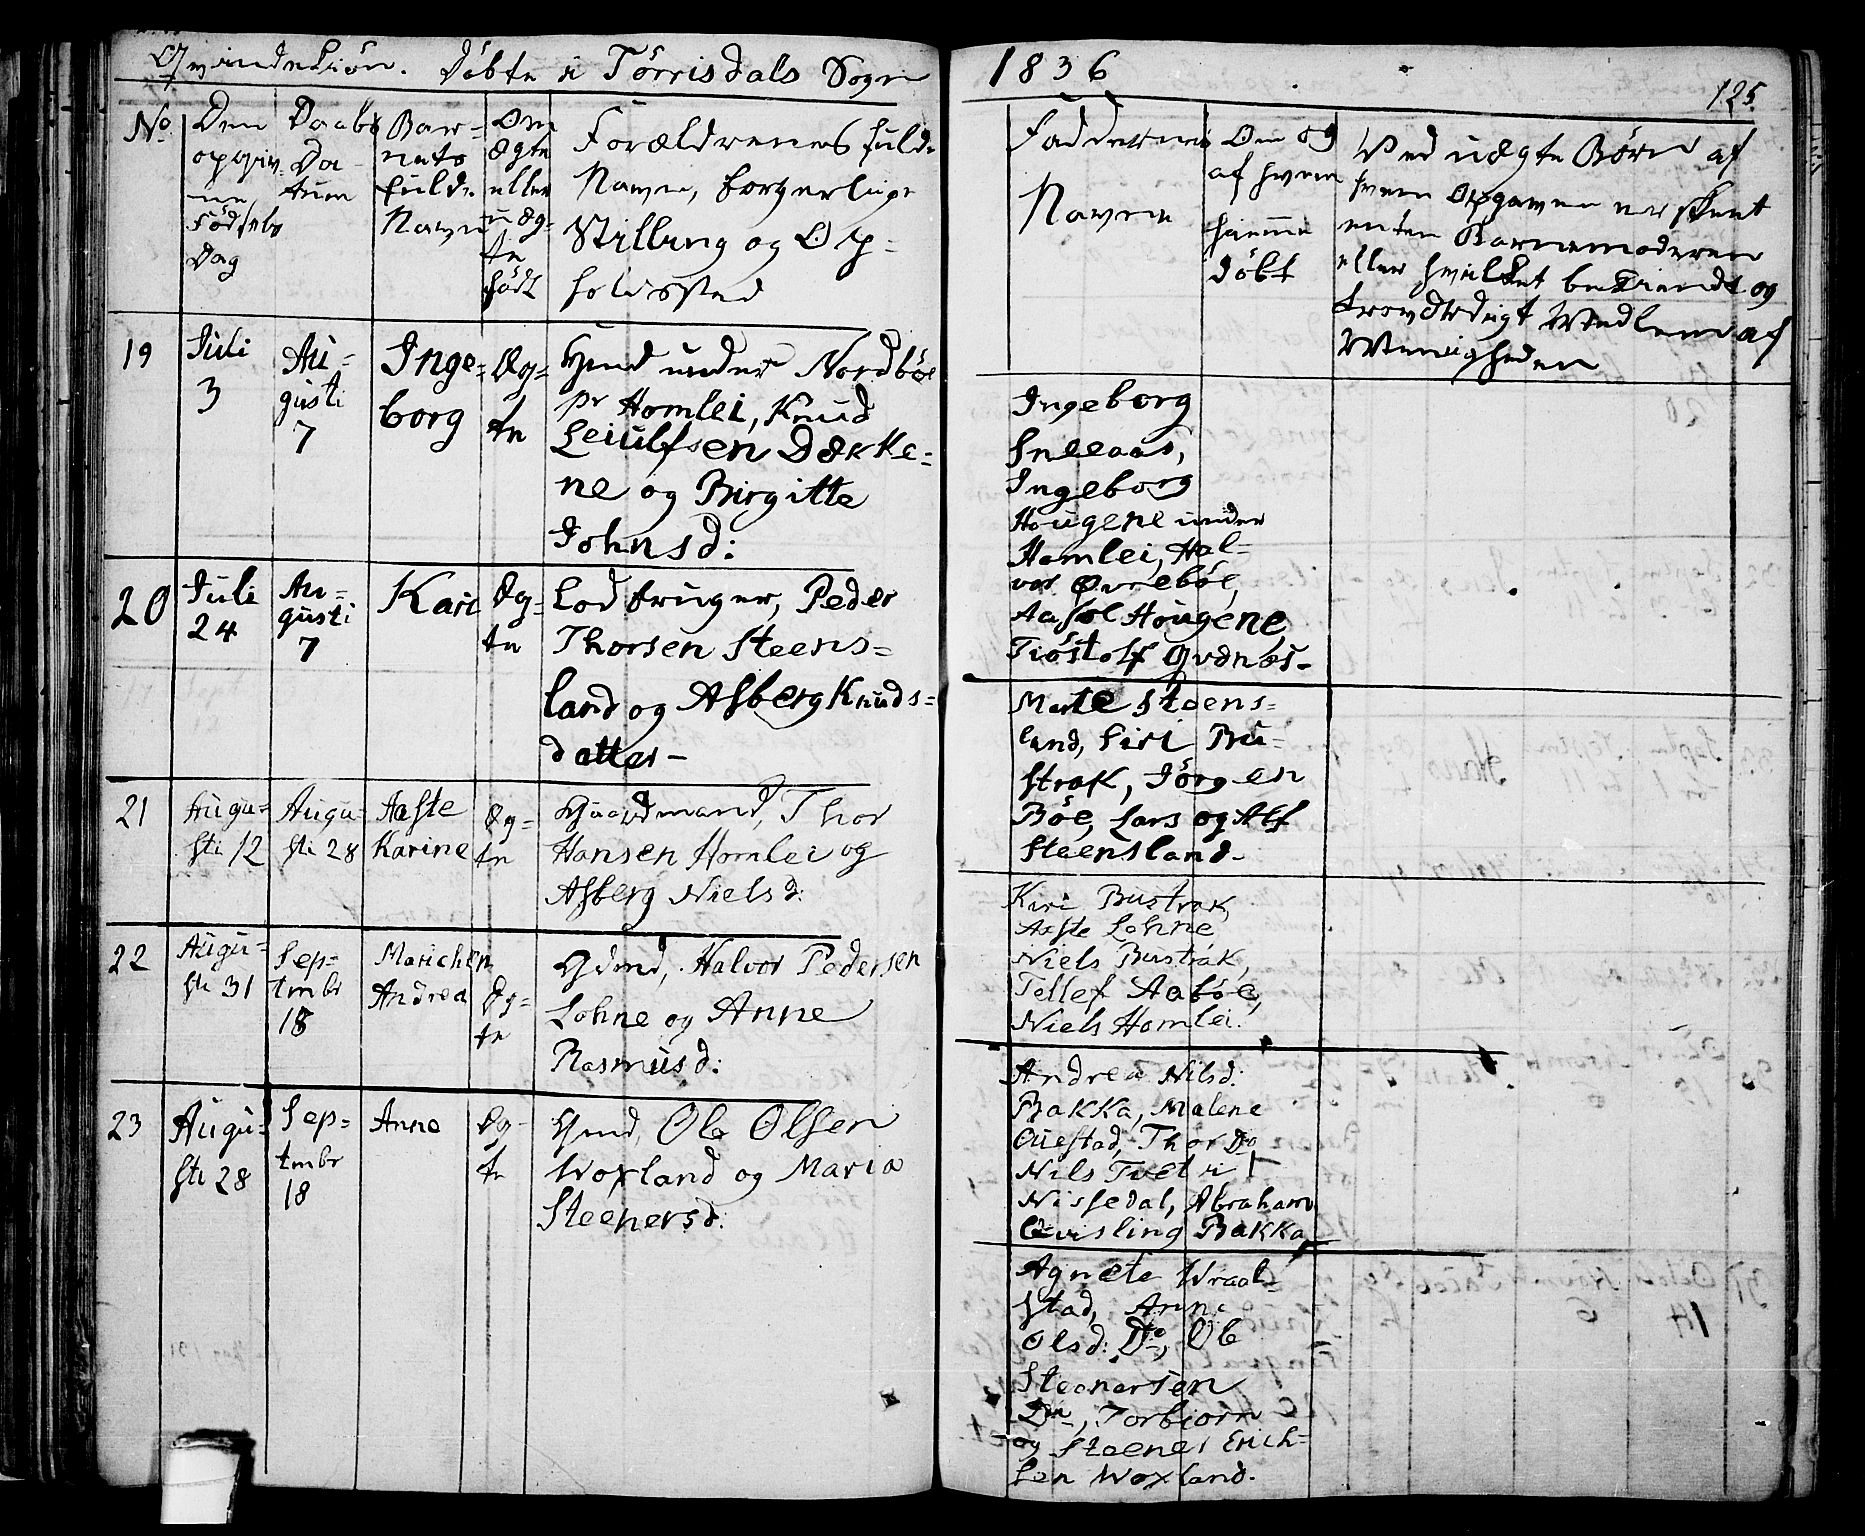 Qvindekiön. Döbte i Törrisdals Sogn
1836
125.
No.
Den
opgiv-
ne
Födsels
Dag
Daabs
Da-
tum
Bar-
nets
fulde
Navn
Om
ægte
eller
uæg-
te
födt
Forældrenes fulde
Navne, borgerlige
Stilling og Op-
holdssted
Faddernes
Navne
Om og
af hvem
hiemme
döbt
Ved uægte Børn af
hvem Opgaven er skeet
enten Barnemoderen
eller hvilket bekiendt og
troværdigt Medlem af
Menigheden
19
Juli
3
Au-
gusti
7
Inge-
borg
Æg-
te
Hmd under Nordböe
pr Homlei, Knud
Leiulfsen Dække-
ne og Birgitte
Johnsd:
Ingeborg
Sneeaas,
Ingeborg
Hougene under
Homlei, Hal-
vor Øvreböe,
Aasol Hougene
Tiöstolf Qvdnæs-
20
Juli
24
Au-
gusti
7
Kari
Æg-
te
Lodbruger, Peder
Thorsen Steens-
land og Asberg Knuds-
datter-
Marte Steens-
land, Siri Bu-
strak, Jörgen
Böe, Lars og Alf
Steensland-
21
Augu-
sti 12
Augu-
sti 28
Aaste
Karine
Æg-
te
Gaardmand, Thor
Hansen Homlei og
Asberg Nielsd:
Kiri Bustrak,
Aaste Lohne
Niels Bustrak,
Tellef Aaböe,
Niels Homlei.
22
Augu-
sti 31
Sep-
tmbr
18
Marichen
Andrea
Æg-
te
Gdmd, Halvor Pedersen
Lohne og Anne
Rasmusd:
Andrea Nilsd:
Bakka, Malene
Questad, Thor Do
Nils Tvet i
Nissedal, Abraham
Qvisling Bakka
23
Augu-
sti 28
Sep-
tmbr
18
Anne
Æg-
te
Hmd, Ole Olsen
Woxland og Maria
Steenersd:
Agnete Wraal-
stad, Anne
Olsd: Do, Ole
Steenersen
Do, Torbiörn
og Steener Erich-
sen Woxland.